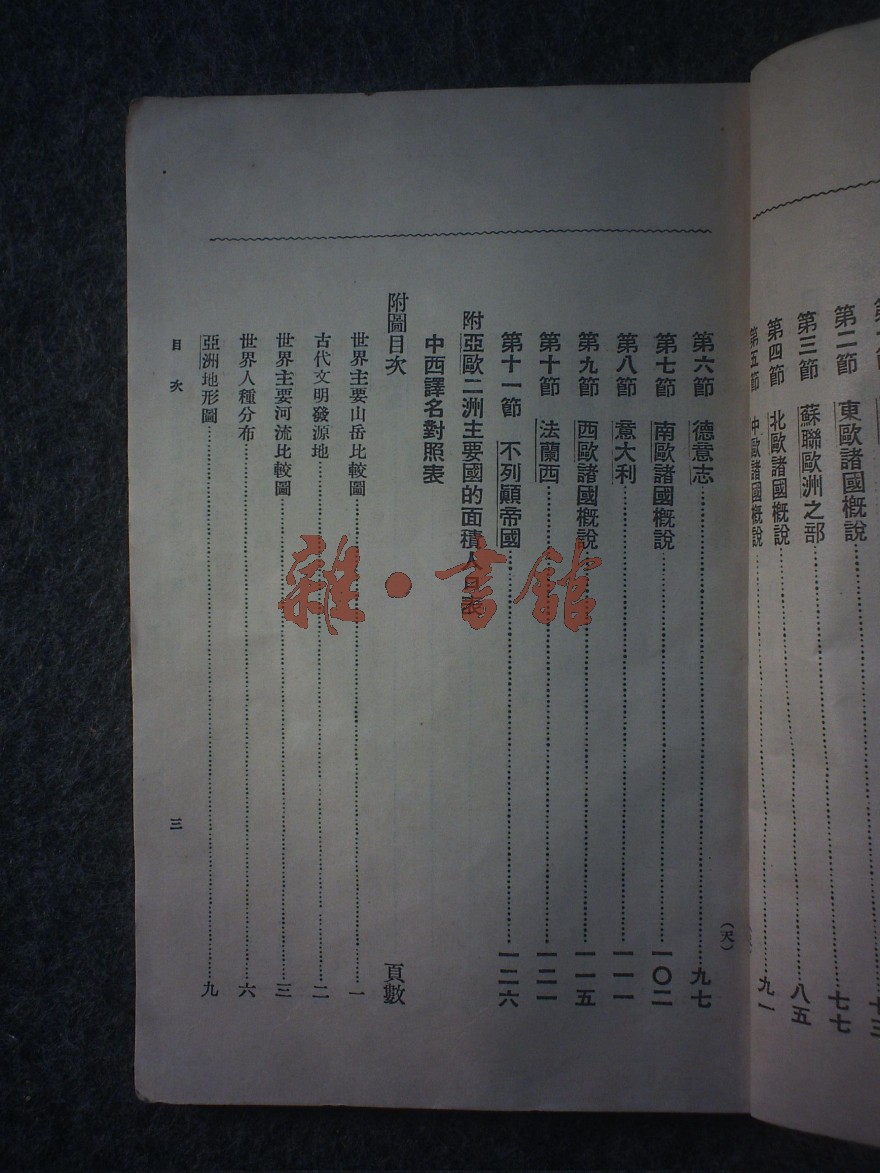 第二節 東歐諸國概說……七七
第三節 蘇聯歐洲之部……八五
第四節 北歐諸國概說
第五節 中歐諸國概說……九一
第六節 德意志……九七
第七節 南歐諸國概說……一〇二
第八節 意大利……一一一
第九節 西歐諸國概說……一一五
第十節 法蘭西……一二一
第十一節 不列顛帝國……一二六
附 亞歐二洲主要國的面積人口表
中西譯名對照表
附圖目次 頁數
世界主要山岳比較圖……一
古代文明發源地……二
世界主要河流比較圖……三
世界人種分布……六
亞洲地形圖……九
目次 三
雜·書館